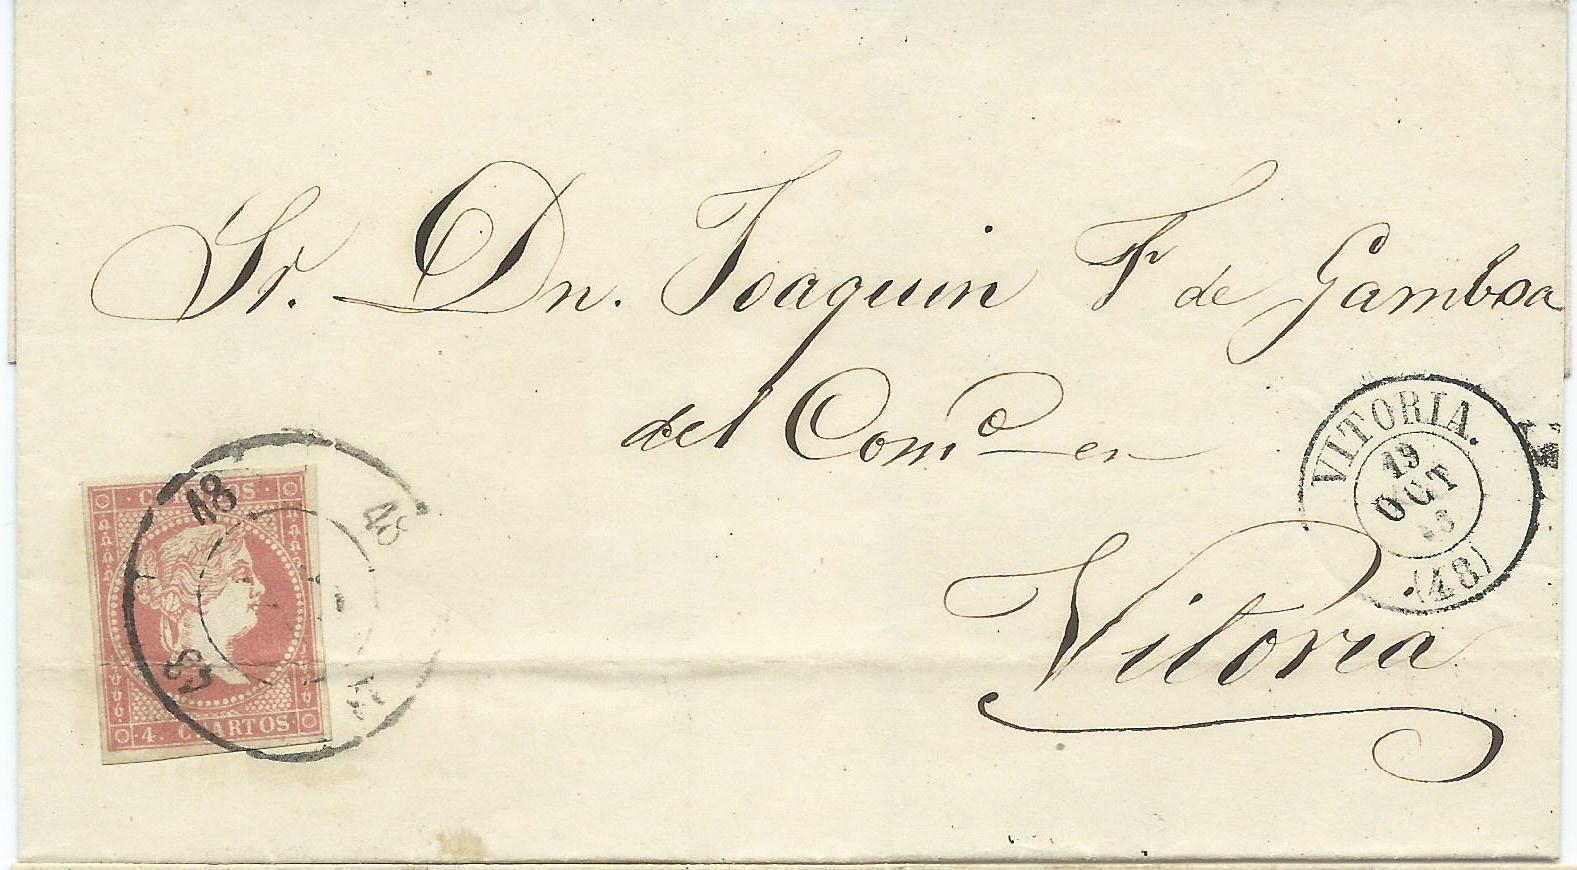 Sr. Dn. Joaquin F de Gamboa
del Comº en
Vitoria
VITORIA.
19
OCT
(48)
48
48
CORREOS
4. CUARTOS